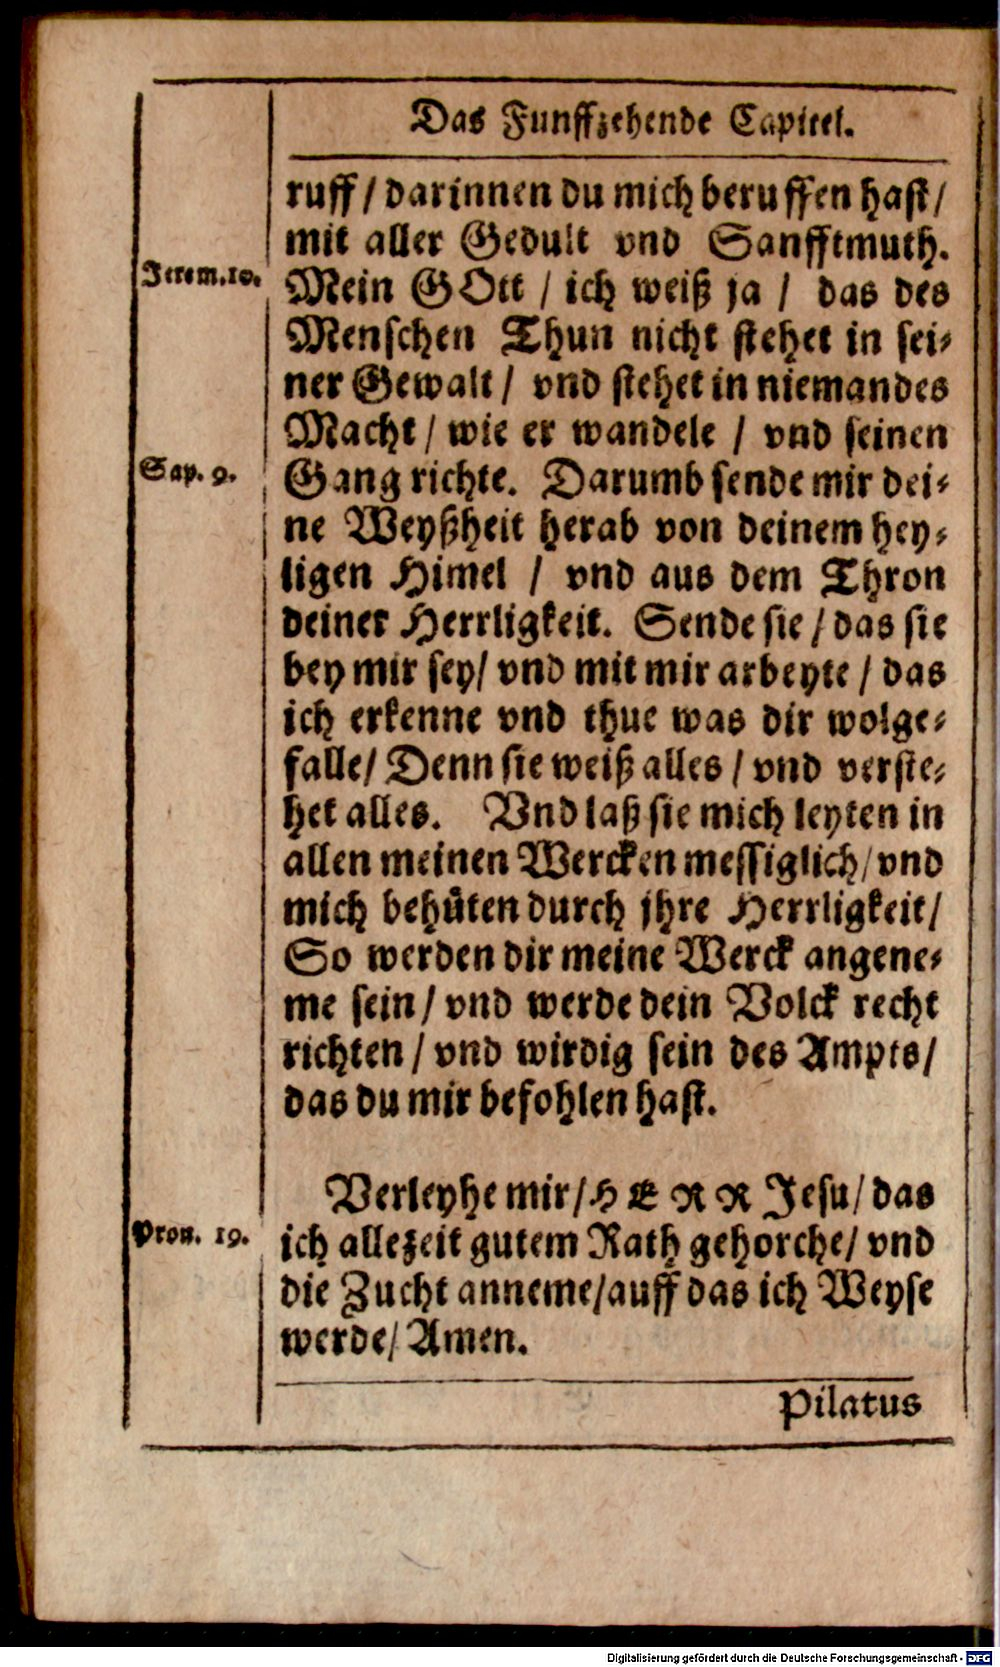 Das Funffzehende Capitel.
ruff / darinnen du mich beruffen hast /
mit aller Gedult vnd Sanfftmuth.
Jerem. 10.
Mein GOtt / ich weiß ja / das des
Menschen Thun nicht stehet in sei-
ner Gewalt / vnd stehet in niemandes
Macht / wie er wandele / vnd seinen
Sap. 9.
Gang richte. Darumb sende mir dei-
ne Weyßheit herab von deinem hey-
ligen Himel / vnd aus dem Thron
deiner Herrligkeit. Sende sie / das sie
bey mir sey / vnd mit mir arbeyte / das
ich erkenne vnd thue was dir wolge-
falle / Denn sie weiß alles / vnd verste-
het alles. Vnd laß sie mich leyten in
allen meinen Wercken messiglich / vnd
mich behuͤten durch jhre Herrligkeit /
So werden dir meine Werck angene-
me sein / vnd werde dein Volck recht
richten / vnd wirdig sein des Ampts /
das du mir befohlen hast.
Verleyhe mir / HERR Jesu / das
Prou. 19.
ich allezeit gutem Rath gehorche / vnd
die Zucht anneme / auff das ich Weyse
werde / Amen.
Pilatus
Digitalisierung gefördert durch die Deutsche Forschungsgemeinschaft - DFG